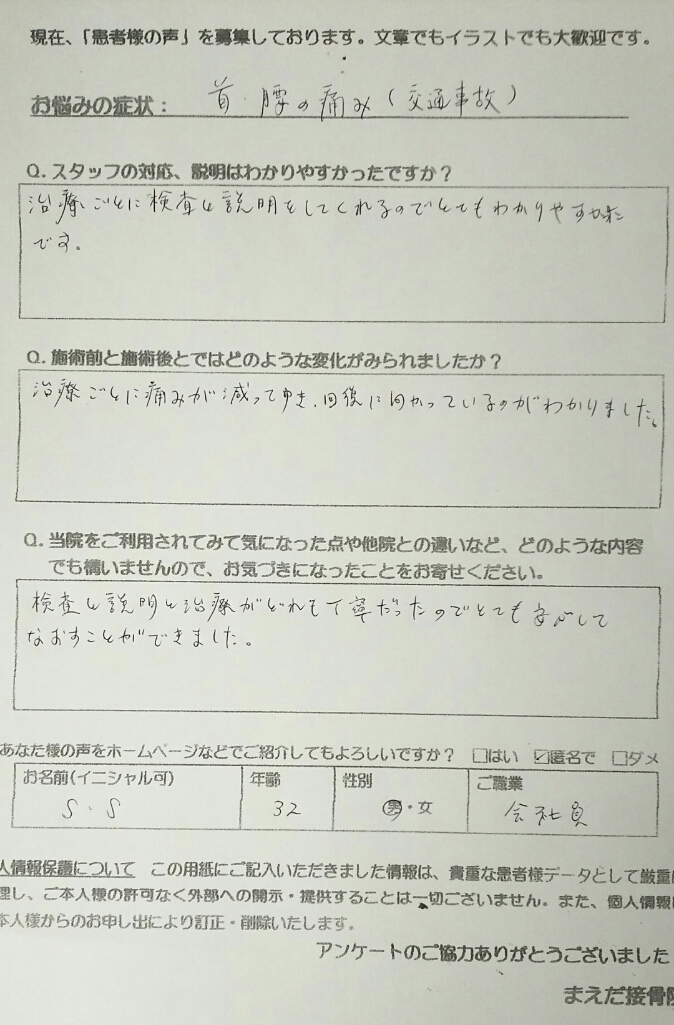 現在、「患者様の声」を募集しております。文章でもイラストでも大歓迎です。
お悩みの症状: 首・腰の痛み(交通事故)
Q. スタッフの対応、説明はわかりやすかったですか?
治療ごとに検査と説明をしてくれるのでとてもわかりやすかった
です。
Q. 施術前と施術後とではどのような変化がみられましたか?
治療ごとに痛みが減ってゆき、回復に向かっているのがわかりました。
Q. 当院をご利用されてみて気になった点や他院との違いなど、どのような内容
でも構いませんので、お気づきになったことをお寄せください。
検査と説明と治療がどれも丁寧だったのでとても安心して
なおすことができました。
あなた様の声をホームページなどでご紹介してもよろしいですか? □はい ☑匿名で □ダメ
お名前(イニシャル可) 年齢 性別 ご職業
S・S 32 男・女 会社員
人情報保護について この用紙にご記入いただきました情報は、貴重な患者様データとして厳重に
理し、ご本人様の許可なく外部への開示・提供することは一切ございません。また、個人情報は
本人様からのお申し出により訂正・削除いたします。
アンケートのご協力ありがとうございました
まえだ接骨院